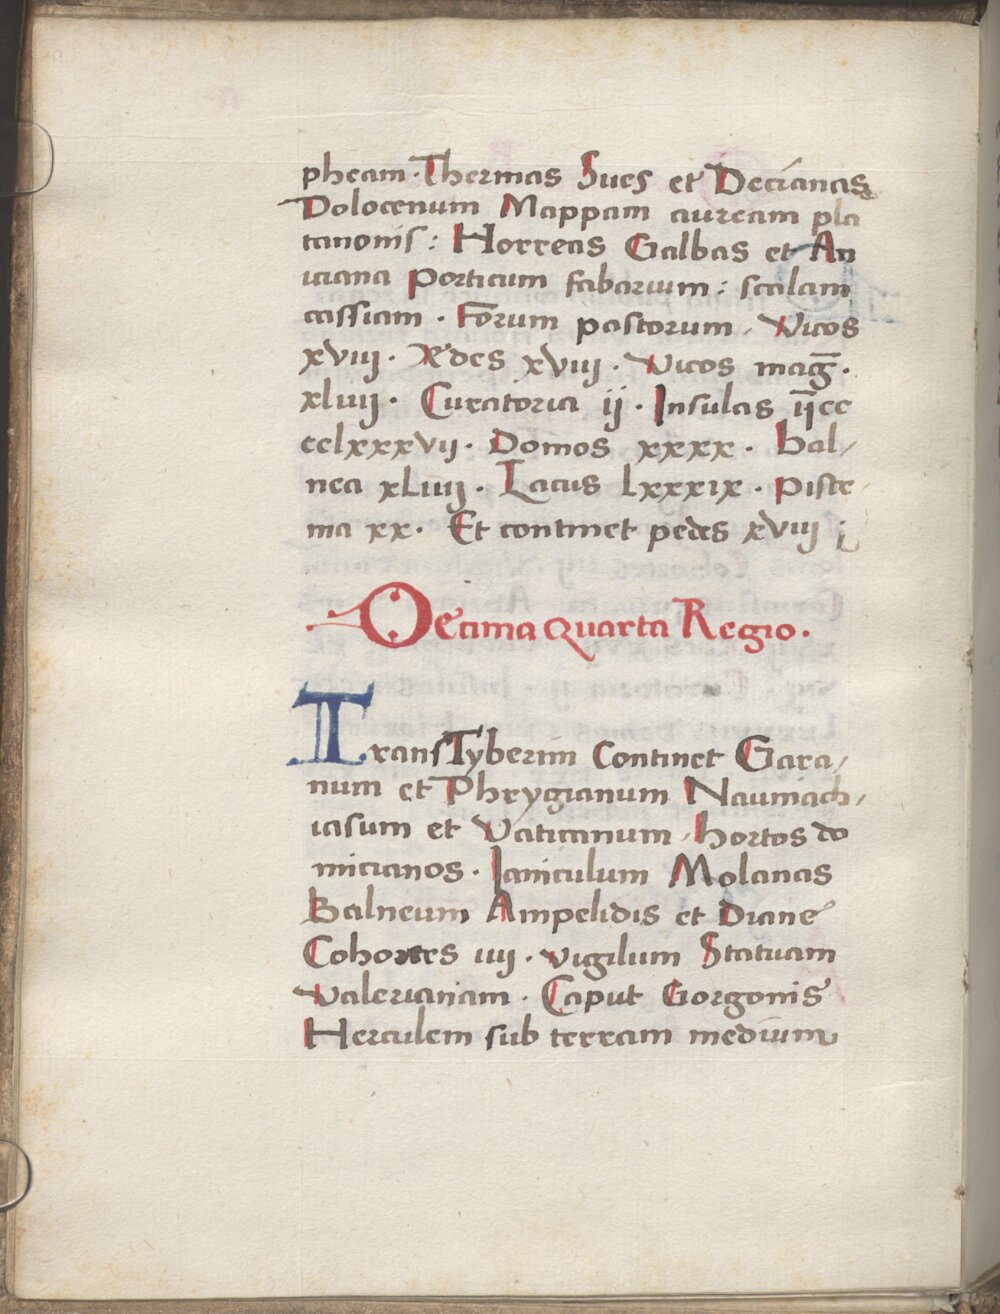 pheam · Thermas Sues et Decianas
Dolocenum Mappam auream pla
tanonis : Horreas Galbas et An
iciana Porticum fabarium : scolam
cassiam · Forum pastorum, Vicos
xviij · Aedes xviij · Vicos mag̅ ·
xliiij · Curatoria ij · Insulas ij̅cc
cclxxxvij · Domos xxxx · bal/
nea xliiij · Lacus lxxxix · piste/
ma xx · Et continet pedes xviij ;
Decima Quarta Regio ·
TransTyberim Continet Gara/
num et Phrygianum Naumach/
iasum et Vaticanum, hortos do
micianos · Janiculum Molanas
Balneum Ampelidis et Diane
Cohortes iiij · vigilum Statuam
Valerianam · Caput Gorgonis
Herculem sub terram medium